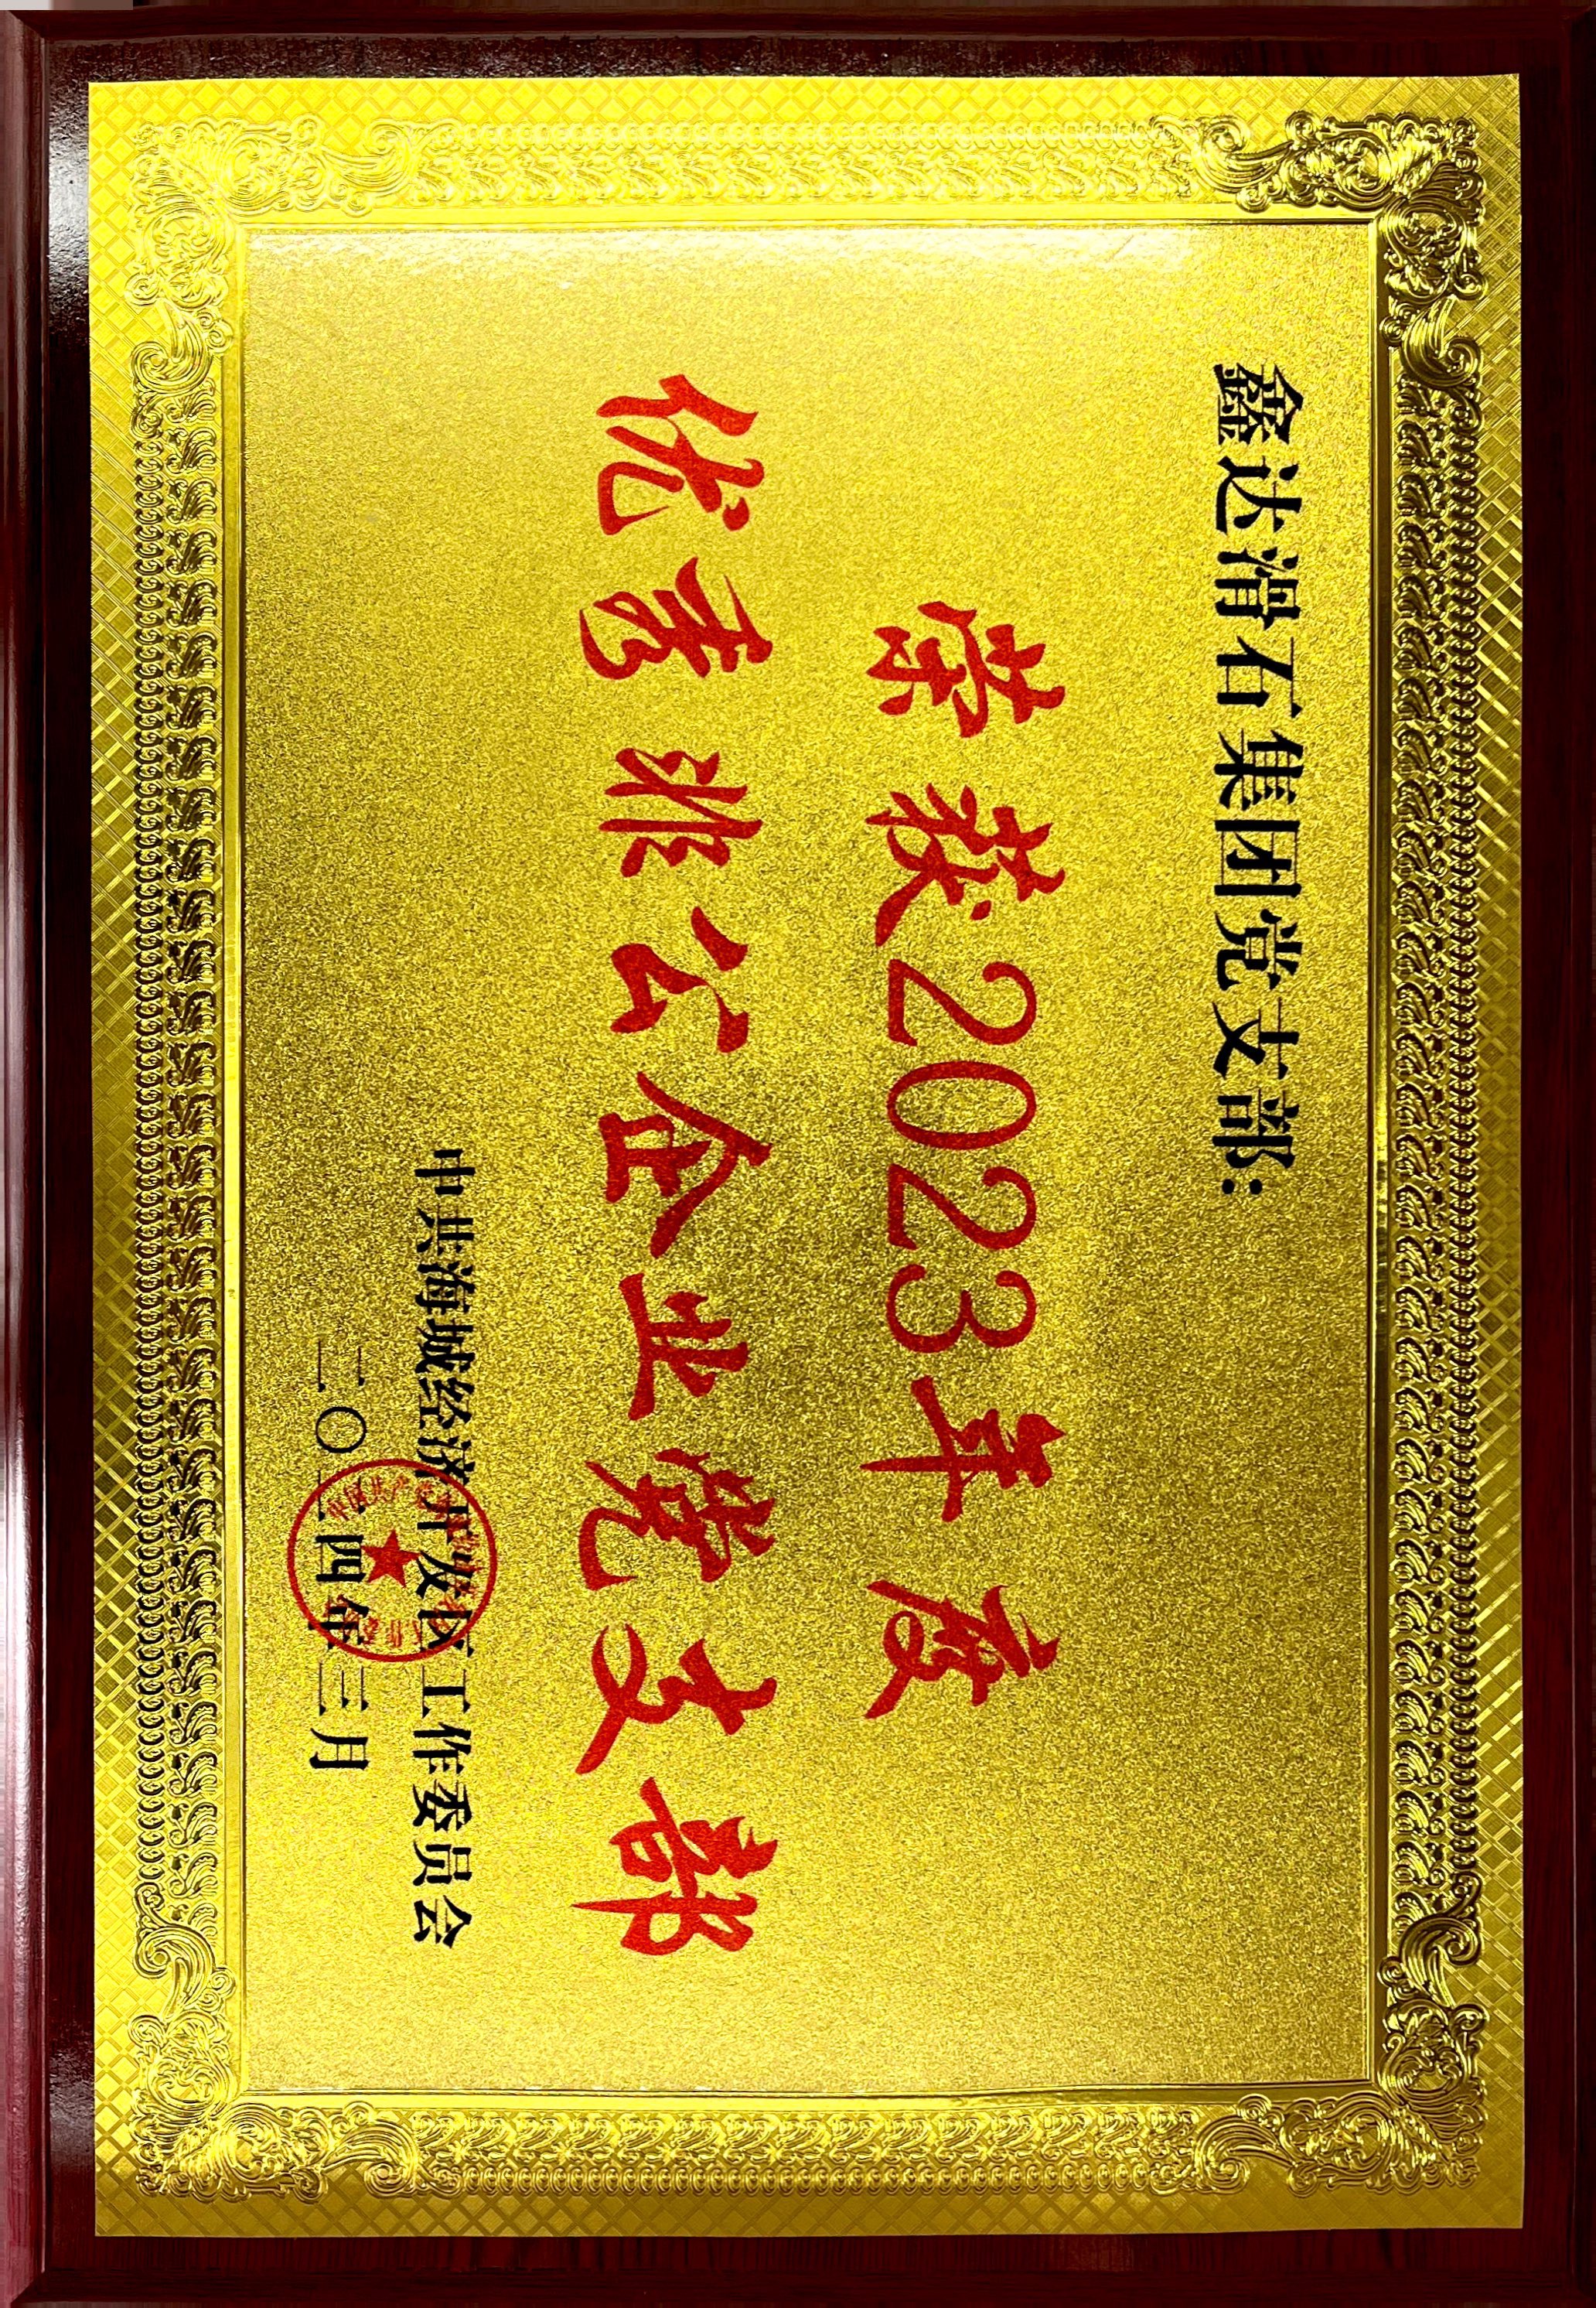 鑫达滑石集团党支部:
荣获2023年度
优秀非公企业党支部
中共海城经济开发区工作委员会
二〇二四年三月